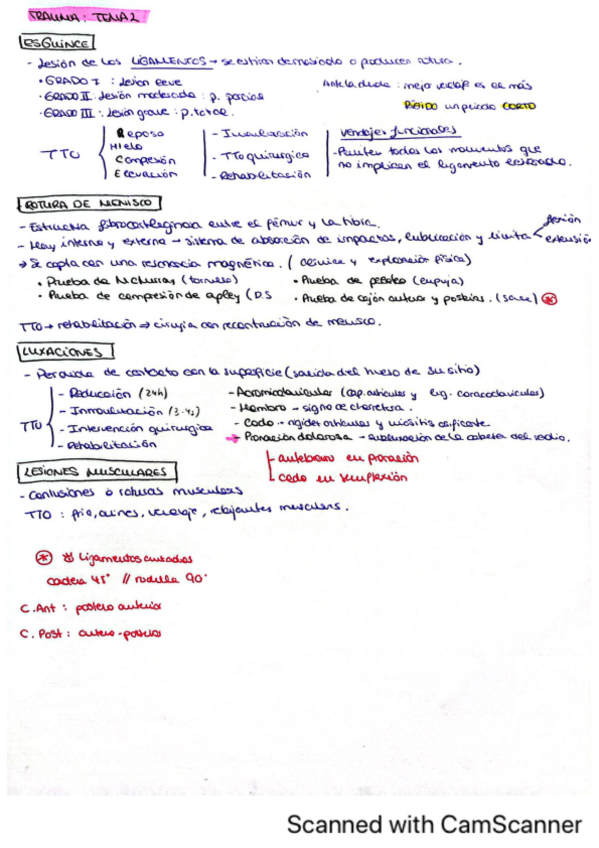 TRAUMA: TEMA 2
ESGUINCE
- Lesión de los LIGAMENTOS → se estiran demasiado o producen rotura.
• GRADO I : lesión leve
Ante la duda : mejor vendaje es el más
• GRADO II : lesión moderada : p. parcial
RÍGIDO un periodo CORTO
• GRADO III : lesión grave : p. total.
TTO
Reposo
Hielo
Compresión
Elevación
- Inmovilización
- TTO quirúrgico
- Rehabilitación
Vendajes funcionales
- Permiten todos los movimientos que
no implican el ligamento lesionado.
ROTURA DE MENISCO
- Estructura fibrocartilaginosa entre el fémur y la tibia.
- Hay interno y externo → sistema de absorción de impactos, lubricación y limita
flexión
extensión
→ Se capta con una resonancia magnética. ( clínica y exploración física)
• Prueba de McMurray (tornillo)
• Prueba de peloteo (empuja)
• Prueba de compresión de apley (D.S
• Prueba de cajón anterior y posterior. ( ) *
TTO → rehabilitación → cirugía con reconstrucción de menisco.
LUXACIONES
- Perdida de contacto con la superficie (salida del hueso de su sitio)
TTO
- Reducción (24h)
- Inmovilización (3-4s)
- Intervención quirúrgica
- Rehabilitación
- Acromioclavicular (cap. articulares y lig. coracoclaviculares)
- Hombro → signo de charretera.
- Codo → rigidez articular y miositis osificante.
→ Pronación dolorosa → subluxación de la cabeza del radio.
- antebrazo en pronación
- codo en semiflexión
LESIONES MUSCULARES
- Contusiones o roturas musculares
TTO : frío, aines, vendaje, relajantes musculares.
* Ligamentos cruzados
cadera 45° // rodilla 90°
C. Ant : postero anterior
C. Post : antero-posterior
Scanned with CamScanner